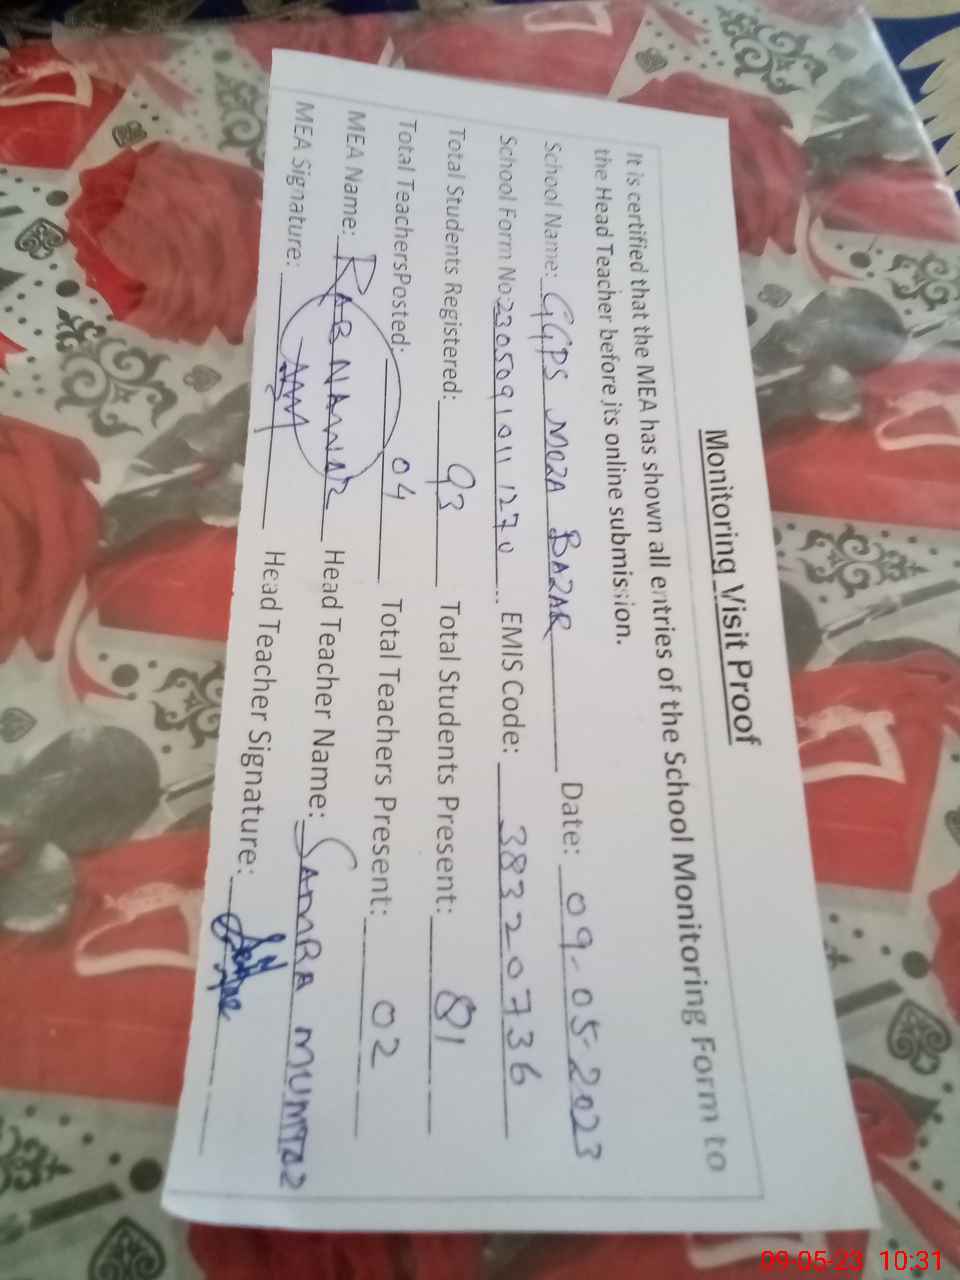 Monitoring Visit Proof
It is certified that the MEA has shown all entries of the School Monitoring Form to
the Head Teacher before its online submission.
School Name: GGPS MOZA BAZAR Date: 09-05-2023
School Form No 2305091011270 EMIS Code: 38320736
Total Students Registered: 93 Total Students Present: 81
Total TeachersPosted: 04 Total Teachers Present: 02
MEA Name: RAB NAWAZ Head Teacher Name: SAMRA MUMTAZ
MEA Signature: Head Teacher Signature:
09-05-23 10:31